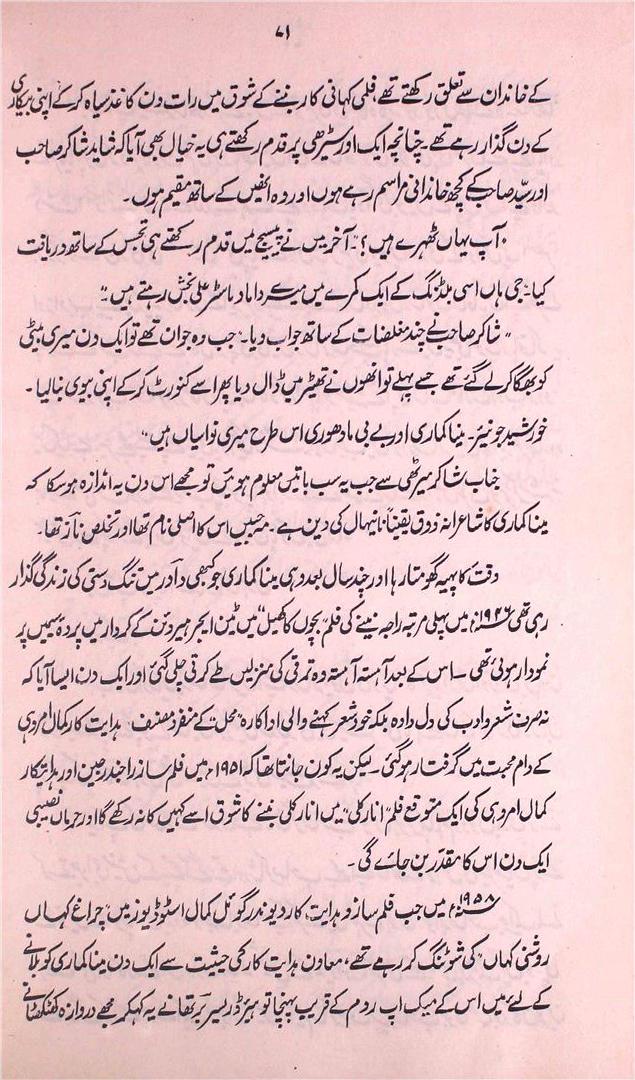 ۷۱
کے خاندان سے تعلق رکھتے تھے، فلمی کہانی کار بننے کے شوق میں رات دن کاغذ سیاہ کر کے اپنی بیکاری
کے دن گذار رہے تھے۔ چنانچہ ایک اور سیڑھی پر قدم رکھتے ہی یہ خیال بھی آیا کہ شاید شاکر صاحب
اور سیّد صاحب کے کچھ خاندانی مراسم رہے ہوں اور وہ انھیں کے ساتھ مقیم ہوں۔
"آپ یہاں ٹھہرے ہیں؟"۔ آخر میں نے پیسیج میں قدم رکھتے ہی تجسس کے ساتھ دریافت
کیا۔ "جی ہاں اسی بلڈنگ کے ایک کمرے میں میرے داماد ماسٹر علی بخش رہتے ہیں"۔
"شاکر صاحب نے چند مغلضات کے ساتھ جواب دیا۔" جب وہ جوان تھے تو ایک دن میری بیٹی
کو بھگا کر لے گئے تھے جسے پہلے تو انھوں نے تھیٹر میں ڈال دیا پھر اسے کنورٹ کر کے اپنی بیوی بنا لیا۔
خورشید جونیئر۔ مینا کماری اور بے بی مادھوری اس طرح میری نواسیاں ہیں"
جناب شاکر میرٹھی سے جب یہ سب باتیں معلوم ہوئیں تو مجھے اس دن یہ اندازہ ہو سکا کہ
مینا کماری کا شاعرانہ ذوق یقیناً نانیہال کی دین ہے۔ مہ جبیں اس کا اصلی نام تھا اور تخلص ناز تھا۔
وقت کا پہیہ گھومتا رہا اور چند سال بعد وہی مینا کماری جو کبھی دادر میں تنگ دستی کی زندگی گذار
رہی تھی ۱۹۴۶ء میں پہلی مرتبہ راجہ نینے کی فلم "بچوں کا کھیل" میں ٹین ایجر ہیروئن کے کردار میں پردۂ سیمیں پر
نمودار ہوئی تھی۔ اس کے بعد آہستہ آہستہ وہ ترقی کی منزلیں طے کرتی چلی گئی اور ایک دن ایسا آیا کہ
نہ صرف شعر و ادب کی دل دادہ بلکہ خود شعر کہنے والی اداکارہ "محل" کے منفرد مصنف ہدایت کار کمال امروہی
کے دام محبت میں گرفتار ہو گئی۔ لیکن یہ کون جانتا تھا کہ ۱۹۵۱ء میں فلم ساز راجندر جین اور ہدایتکار
کمال امروہی کی ایک متوقع فلم "انارکلی" میں انارکلی بننے کا شوق اسے کہیں کا نہ رکھے گا اور حرماں نصیبی
ایک دن اس کا مقدر بن جائے گی۔
۱۹۵۸ء میں جب فلم ساز و ہدایت کار دیوندر گوئل کمال اسٹوڈیوز میں "چراغ کہاں
روشنی کہاں" کی شوٹنگ کر رہے تھے، معاون ہدایت کار کی حیثیت سے ایک دن مینا کماری کو بلانے
کے لئے میں اس کے میک اپ روم کے قریب پہنچا تو ہیئر ڈریسر نے یہ کہہ کر مجھے دروازہ کھٹکھٹانے